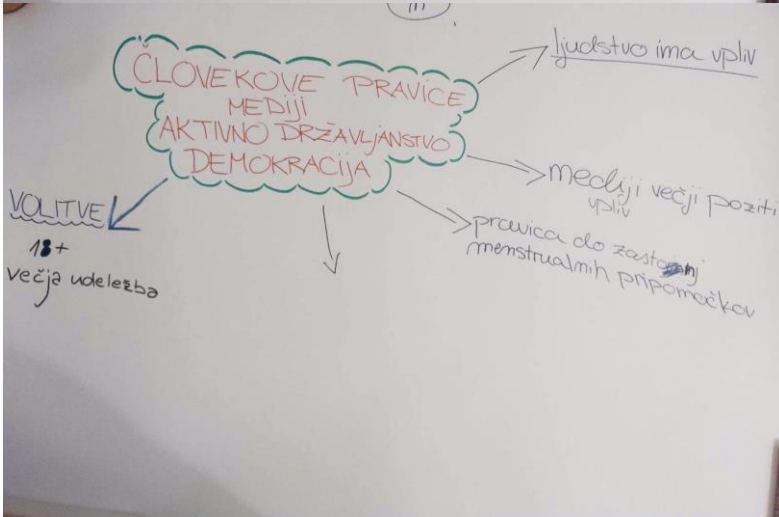 ČLOVEKOVE PRAVICE
MEDIJI
AKTIVNO DRŽAVLJANSTVO
DEMOKRACIJA
ljudstvo ima vpliv
mediji večji poziti
vpliv
pravica do zastonj
menstrualnih pripomočkov
VOLITVE
18+
večja udeležba